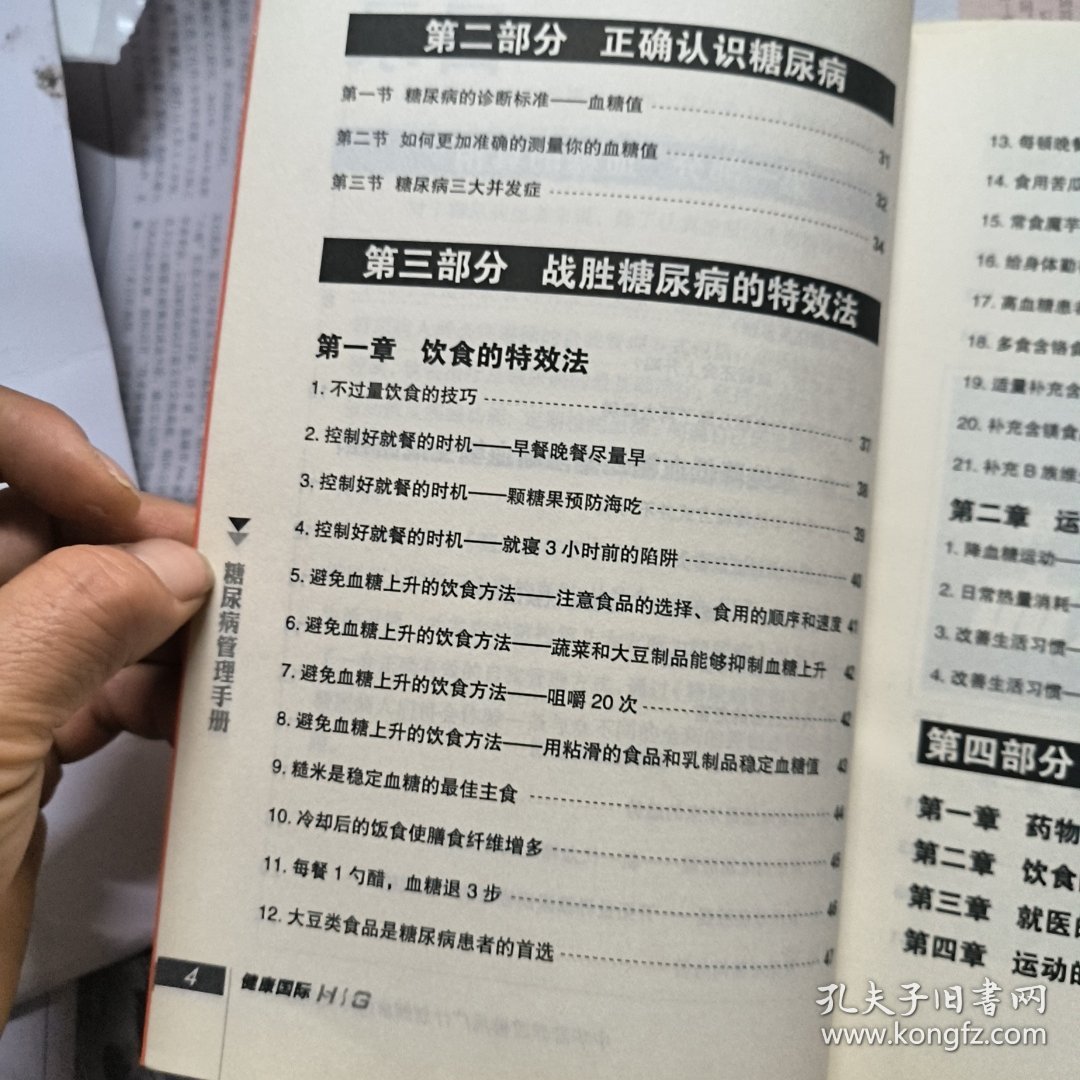 第二部分 正确认识糖尿病
第一节 糖尿病的诊断标准——血糖值 31
第二节 如何更加准确的测量你的血糖值 32
第三节 糖尿病三大并发症 34
第三部分 战胜糖尿病的特效法
第一章 饮食的特效法
1. 不过量饮食的技巧 37
2. 控制好就餐的时机——早餐晚餐尽量早 38
3. 控制好就餐的时机——颗糖果预防海吃 39
4. 控制好就餐的时机——就寝3小时前的陷阱 40
5. 避免血糖上升的饮食方法——注意食品的选择、食用的顺序和速度 41
6. 避免血糖上升的饮食方法——蔬菜和大豆制品能够抑制血糖上升 42
7. 避免血糖上升的饮食方法——咀嚼20次 42
8. 避免血糖上升的饮食方法——用粘滑的食品和乳制品稳定血糖值 43
9. 糙米是稳定血糖的最佳主食 44
10. 冷却后的饭食使膳食纤维增多 45
11. 每餐1勺醋，血糖退3步 46
12. 大豆类食品是糖尿病患者的首选 47
糖尿病管理手册
4 健康国际 HIG
13. 每顿晚餐
14. 食用苦瓜
15. 常食魔芋
16. 给身体勤
17. 高血糖患者
18. 多食含铬食
19. 适量补充含
20. 补充含镁食
21. 补充B族维
第二章 运
1. 降血糖运动——
2. 日常热量消耗—
3. 改善生活习惯—
4. 改善生活习惯—
第四部分
第一章 药物
第二章 饮食
第三章 就医
第四章 运动的
孔夫子旧书网
www.kongfz.com